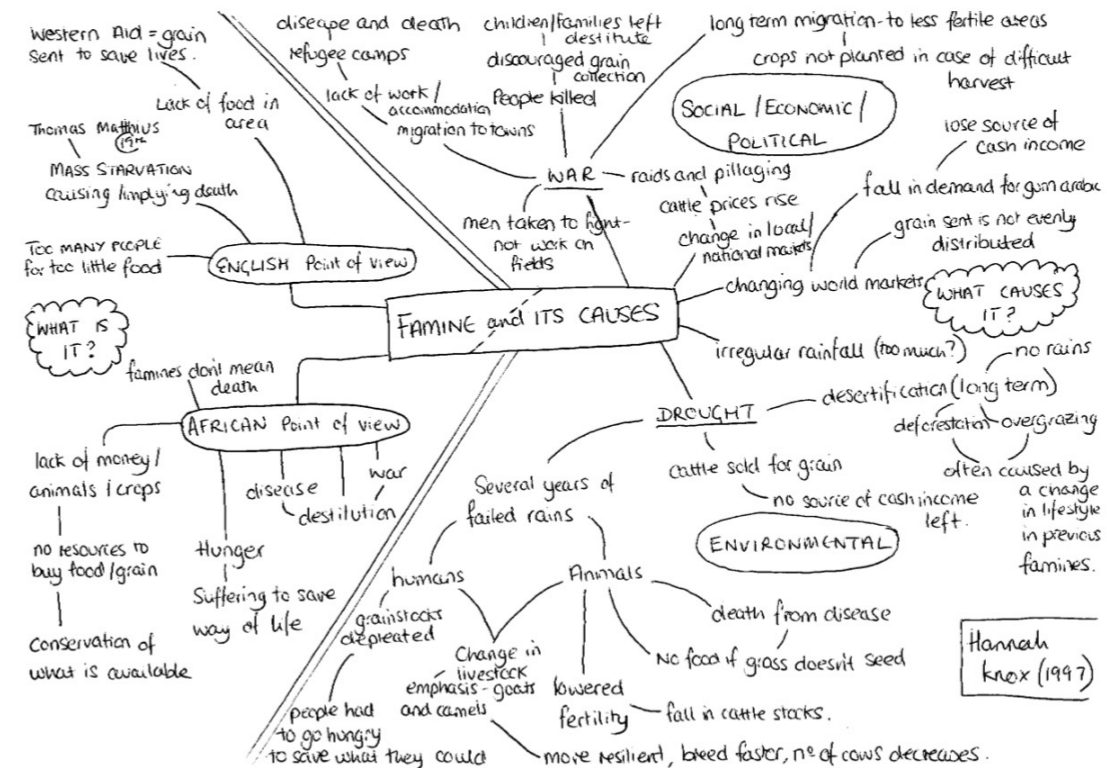 Western Aid = grain
sent to save lives.
Lack of food in
area
Thomas Malthius
19th
MASS STARVATION
causing/implying death
TOO MANY PEOPLE
for too little food
ENGLISH Point of view
WHAT IS
IT?
famines don't mean
death
AFRICAN Point of view
lack of money/
animals/crops
no resources to
buy food/grain
Conservation of
what is available
Hunger
Suffering to save
way of life
disease
destitution
war
disease and death
refugee camps
lack of work/
accommodation
migration to towns
children/families left
destitute
discouraged grain
collection
People killed
WAR
men taken to fight-
not work on
fields
long term migration - to less fertile areas
crops not planted in case of difficult
harvest
SOCIAL/ECONOMIC/
POLITICAL
raids and pillaging
cattle prices rise
change in local/
national markets
lose source of
cash income
fall in demand for gum arabic
grain sent is not evenly
distributed
changing world markets
WHAT CAUSES
IT?
FAMINE and ITS CAUSES
irregular rainfall (too much?)
no rains
desertification (long term)
deforestation
overgrazing
often caused by
a change
in lifestyle
in previous
famines.
DROUGHT
cattle sold for grain
no source of cash income
left.
ENVIRONMENTAL
Several years of
failed rains
humans
grainstocks
depleated
people had
to go hungry
to save what they could
Change in
livestock
emphasis - goats
and camels
more resilient, breed faster, no of cows decreases.
Animals
lowered
fertility
fall in cattle stocks.
death from disease
No food if grass doesn't seed
Hannah
Knox (1997)